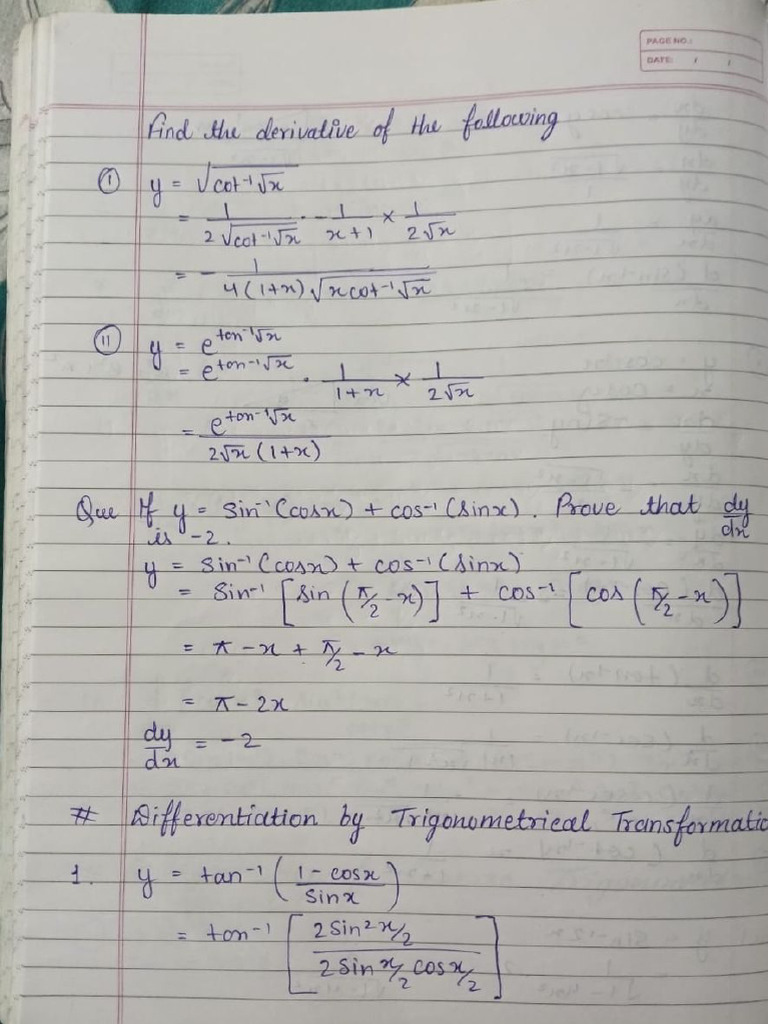 PAGE NO.:
DATE: / /
Find the derivative of the following
(I) y = √cot⁻¹√x
= 1/(2√cot⁻¹√x) · -1/(x+1) × 1/(2√x)
= - 1/(4(1+x)√x cot⁻¹√x)
(II) y = e^(tan⁻¹√x)
= e^(tan⁻¹√x) · 1/(1+x) × 1/(2√x)
= e^(tan⁻¹√x)/(2√x (1+x))
Que If y = sin⁻¹(cosx) + cos⁻¹(sinx). Prove that dy/dx
is -2.
y = sin⁻¹(cosx) + cos⁻¹(sinx)
= sin⁻¹ [sin (π/2 - x)] + cos⁻¹ [cos (π/2 - x)]
= π - x + π/2 - x
= π - 2x
dy/dx = -2
# Differentiation by Trigonometrical Transformatio
1. y = tan⁻¹ ((1 - cosx)/sinx)
= tan⁻¹ [2 sin² x/2 / 2 sin x/2 cos x/2]